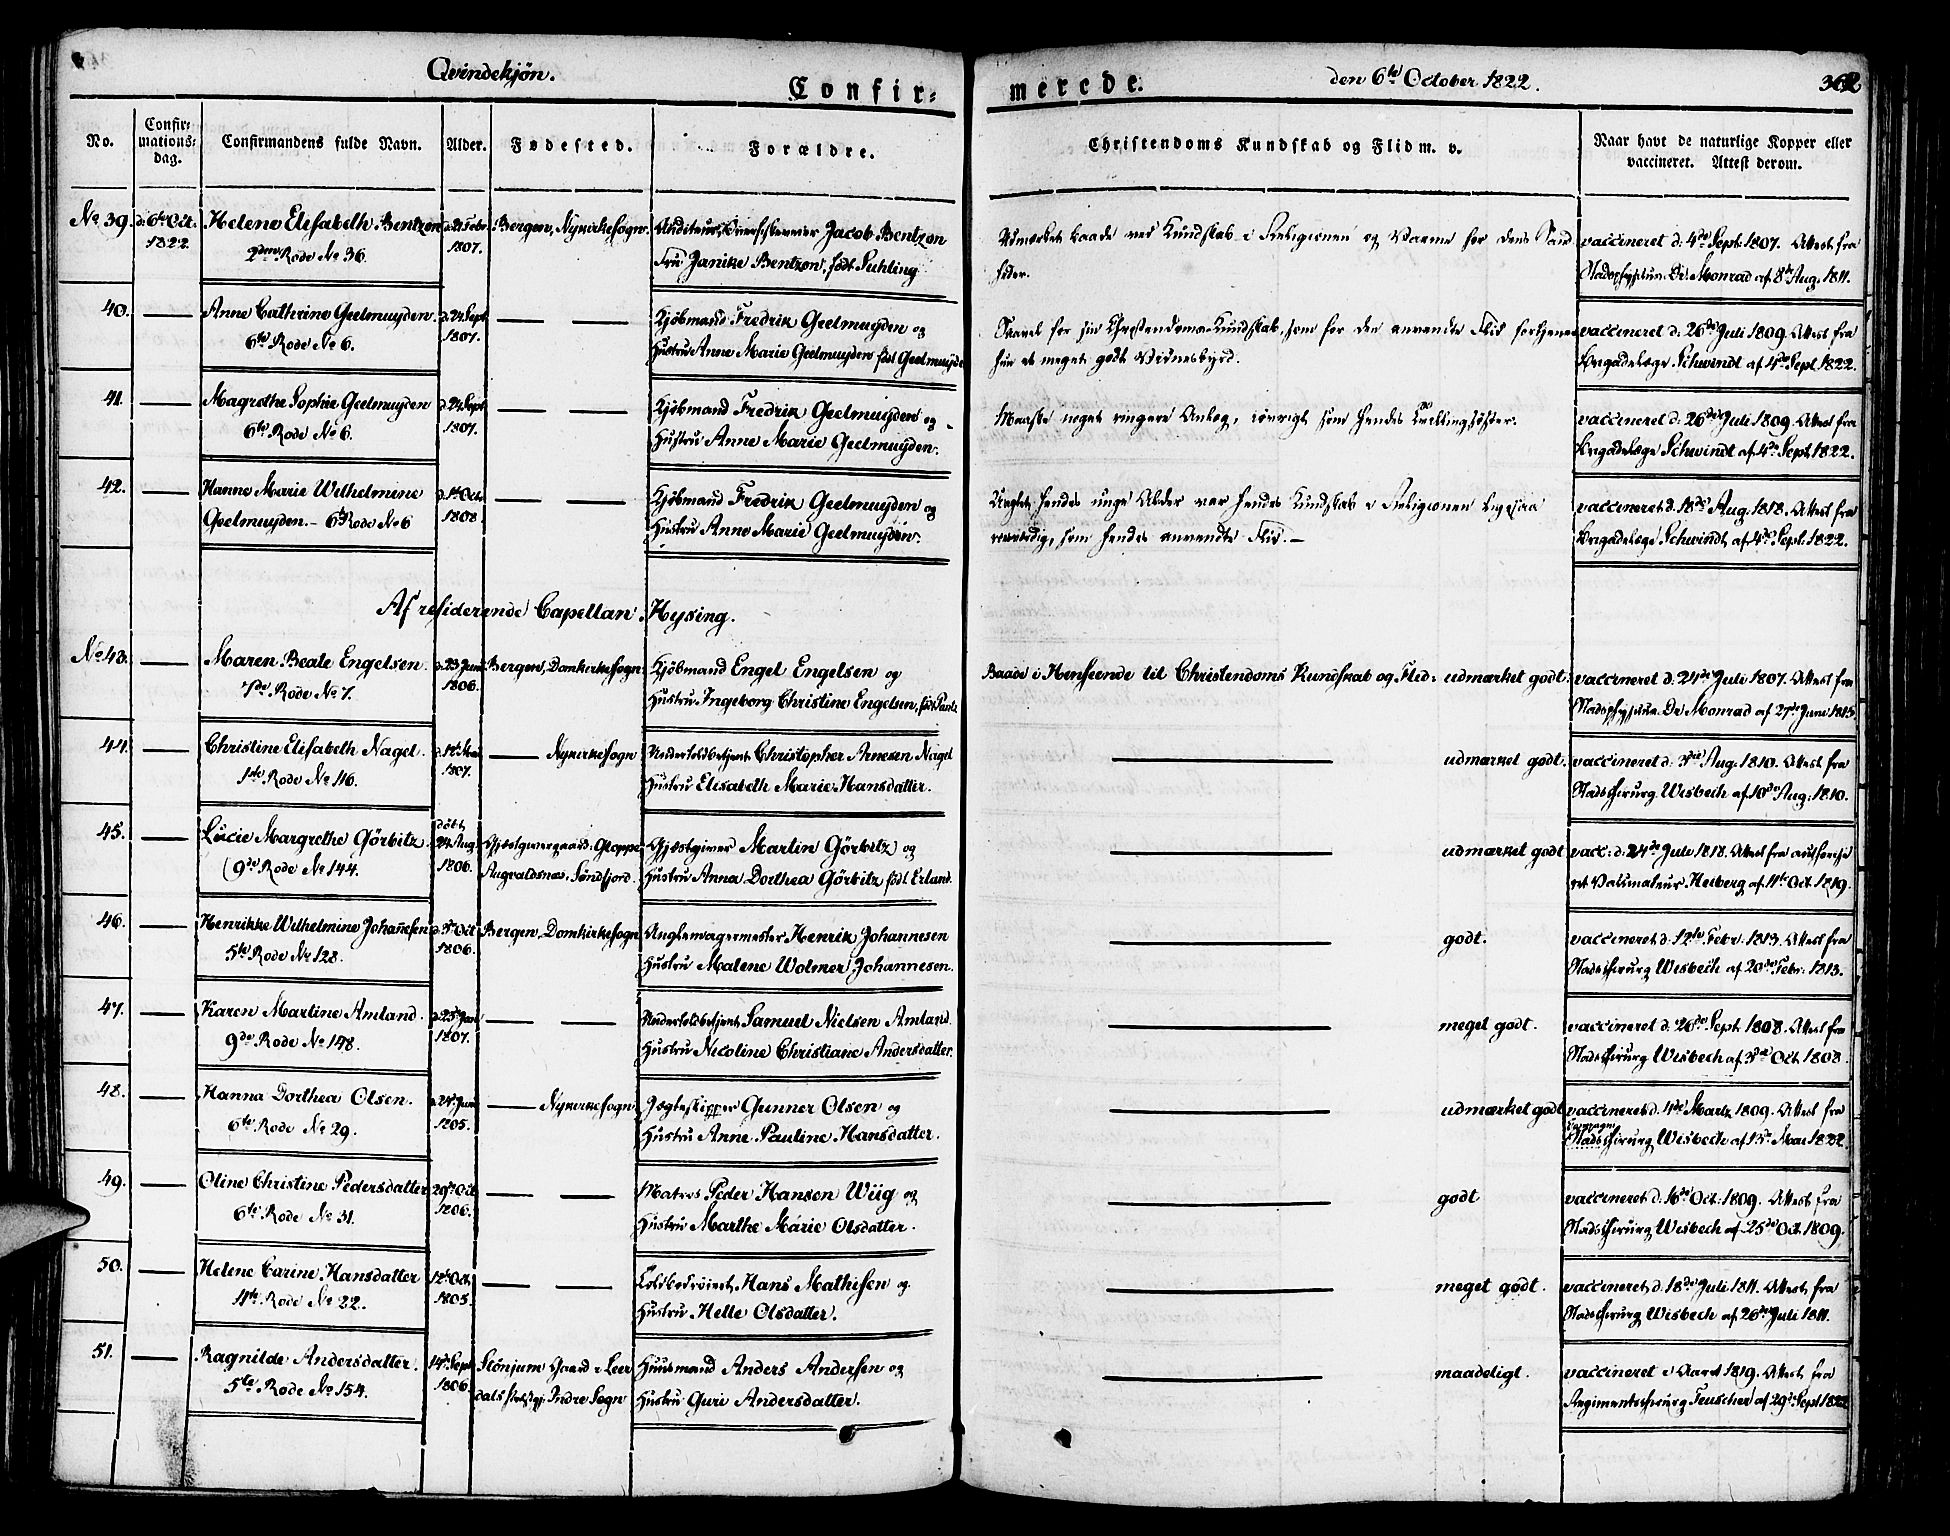 Qvindekjøn.
Confir-
merede.
den 6te October 1822.
362
No.
Confir-
mations-
dag.
Confirmandens fulde Navn.
Alder.
Fødested.
Forældre.
Christendoms Kundskab og Flid m. v.
Naar havt de naturlige Kopper eller
vaccineret. Attest derom.
No 39.
d. 6te Oct.
1822.
Helene Elisabeth Bentzon
2den Rode No 36.
1807.
Bergen, Nykirkesogn.
Jacob Bentzon
Fru Janike Bentzon, født Suhling
Udmærket baade ved Kundskab i Religionen og Varme for dens Sand
heder.
vaccineret d: 4de Sept: 1807. Attest fra
Stadsphysicus Dr Monrad af 8de Aug. 1811.
40.
Anne Cathrine Geelmuyden.
6te Rode No 6.
d. 24 Sept
1807.
Kjøbmand Fredrik Geelmuyden og
Hustru Anne Marie Geelmuyden født Geelmuyden
Saavel for sin Christendoms-Kundskab, som for den anvendte Flid fortjener
hun et meget godt Vidnesbyrd.
vaccineret d: 26de Juli 1809. Attest fra
Brigadelæge Schwindt af 4de Sept. 1822.
41.
Magrethe Sophie Geelmuyden
6te Rode No 6.
d. 24 Sept
1807.
Kjøbmand Fredrik Geelmuyden og
Hustru Anne Marie Geelmuyden.
Maaske noget ringere Anlæg, iøvrigt som hendes Tvillingsøster.
vaccineret d: 26de Juli 1809. Attest fra
Brigadelæge Schwindt af 4de Sept. 1822.
42.
Hanne Marie Wilhelmine
Geelmuyden. - 6te Rode No 6
d. 1te Octr
1808.
Kjøbmand Fredrik Geelmuyden og
Hustru Anne Marie Geelmuyden.
Uagtet hendes unge Alder var hendes Kundskab i Religionen ligesaa
roesværdig, som hendes anvendte Flid. -
vaccineret d. 18de Aug. 1818. Attest fra
Brigadelæge Schwindt af 4de Sept. 1822.
Af residerende Capellan: Hysing.
No 43.
Maren Beate Engelsen.
7de Rode No 7.
d. 23 Juni
1806.
Bergen, Domkirkesogn
Kjøbmand Engel Engelsen og
Hustru Ingeborg Christine Engelsen,
Baade i Henseende til Christendoms Kundskab og Flid: udmærket godt.
vaccineret d: 24de Juli 1807. Attest fra
Stadsphysicus Dr Monrad af 27de Juni 1815
44.
Christine Elisabeth Nagel.
1ste Rode No 116.
1807.
Nykirkesogn
Undertoldbetjent Christopher Arnesen Nagel
Hustru Elisabeth Marie Hansdatter.
udmærket godt.
vaccineret d: 3die Aug: 1810. Attest fra
Stadschirurg Wisbech af 10de Aug: 1810.
45.
Lucie Margrethe Görbitz.
9de Rode No 144.
døbt
24 Aug
1806.
Gjæstgivergaard
Augvaldsnæs, Søndfjord.
Gjæstgiver Martin Görbitz og
Hustru Anna Dorthea Görbitz født Erland.
udmærket godt
vacc: d: 24de Juli 1818. Attest fra autorise
ret Vaccinateur Heiberg af 11te Oct. 1819.
46.
Henrikke Wilhelmine Johannesen
5te Rode No 128.
d. 3 Oct
1806.
Bergen, Domkirkesogn
Henrik Johannesen
Hustru Malene Wolmer Johannesen.
godt.
vaccineret d: 12te Febr. 1813. Attest fra
Stadschirurg Wisbech af 20de Febr: 1813.
47.
Karen Martine Amland.
9de Rode No 148.
d. 25 Jan
1807.
Undertoldbetjent Samuel Nielsen Amland.
Hustru Nicoline Christiane Andersdatter.
meget godt.
vaccineret d: 26de Sept. 1808. Attest fra
Stadschirurg Wisbech af 3die Oct. 1808.
48.
Hanna Dorthea Olsen.
6te Rode No 29.
1805.
Nykirkesogn
Jægteskipper Gunner Olsen og
Hustru Anne Pauline Hansdatter.
udmærket godt
vaccineret d. 4de Marts 1809. Attest fra
Stadschirurg Wisbech af 13de Mai 1822.
49.
Oline Christine Pedersdatter
6te Rode No 31.
20de Oct.
1806.
Matros Peder Hansen Wiig og
Hustru Marthe Marie Olsdatter.
godt
vaccineret d: 16de Oct. 1809. Attest fra
Stadschirurg Wisbech af 25de Oct. 1809.
50.
Helene Carine Hansdatter
4te Rode No 22.
12te Oct.
1805.
Hans Mathisen og
Hustru Helle Olsdatter.
meget godt.
vaccineret d. 18de Juli 1811. Attest fra
Stadschirurg Wisbech af 26de Juli 1811.
51.
Ragnilde Andersdatter.
5te Rode No 154.
14de Sept
1806.
Stønjum Gaard i Leer
dals Præstegj. Indre Sogn
Huusmand Anders Andersen og
Hustru Guri Andersdatter.
maadeligt.
vaccineret i Aaret 1819. Attest fra
Regimentschirurg Teuscher af 29de Sept 1822